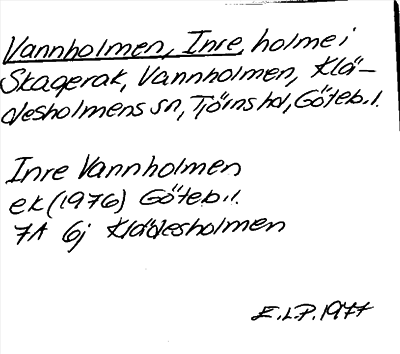 Vannholmen, Inre, holme i
Skagerak, Vannholmen, Klä-
desholmens sn, Tjörns hd, Göteb. l.
Inre Vannholmen
ek (1976) Göteb. l.
7A 6j Klädesholmen
E.L.P. 1977